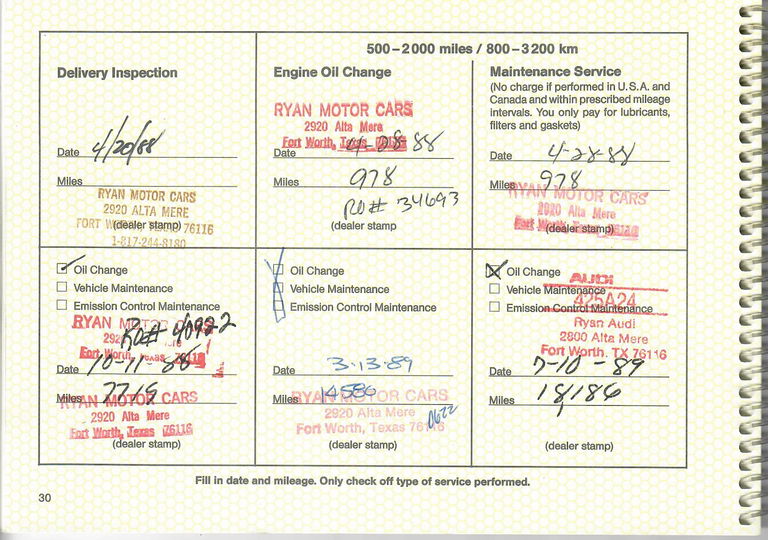 500–2000 miles / 800–3200 km
Delivery Inspection
Date 4/20/88
Miles
RYAN MOTOR CARS
2920 ALTA MERE
FORT WORTH, TEXAS 76116
(dealer stamp)
1-817-244-8180
Engine Oil Change
RYAN MOTOR CARS
2920 Alta Mere
Fort Worth, Texas
Date 4-28-88
Miles 978
RO# 34693
(dealer stamp)
Maintenance Service
(No charge if performed in U.S.A. and
Canada and within prescribed mileage
intervals. You only pay for lubricants,
filters and gaskets)
Date 4-28-88
Miles 978
RYAN MOTOR CARS
2920 Alta Mere
Fort Worth, Texas
(dealer stamp)
Oil Change
Vehicle Maintenance
Emission Control Maintenance
RYAN MOTOR CARS
RO# 40922
Fort Worth, Texas 76116
Date 10-11-88
Miles 7719
RYAN MOTOR CARS
2920 Alta Mere
Fort Worth, Texas 76116
(dealer stamp)
Oil Change
Vehicle Maintenance
Emission Control Maintenance
Date 3-13-89
Miles 14586
RYAN MOTOR CARS
2920 Alta Mere
Fort Worth, Texas 76116
0622
(dealer stamp)
Oil Change
AUDI
Vehicle Maintenance
425A24
Emission Control Maintenance
Ryan Audi
2800 Alta Mere
Fort Worth, TX 76116
Date 7-10-89
Miles 18,186
(dealer stamp)
Fill in date and mileage. Only check off type of service performed.
30